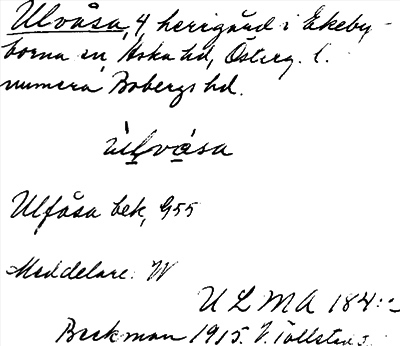 Ulvåsa, 4 herrgård i Ekeby-
borna sn, Aska hd, Österg. l.
numera Bobergs hd.
ùlvàsa
Ulfåsa bek, G55
Meddelare: W
ULMA 184:
Beckman 1915. V. Tollstad s.